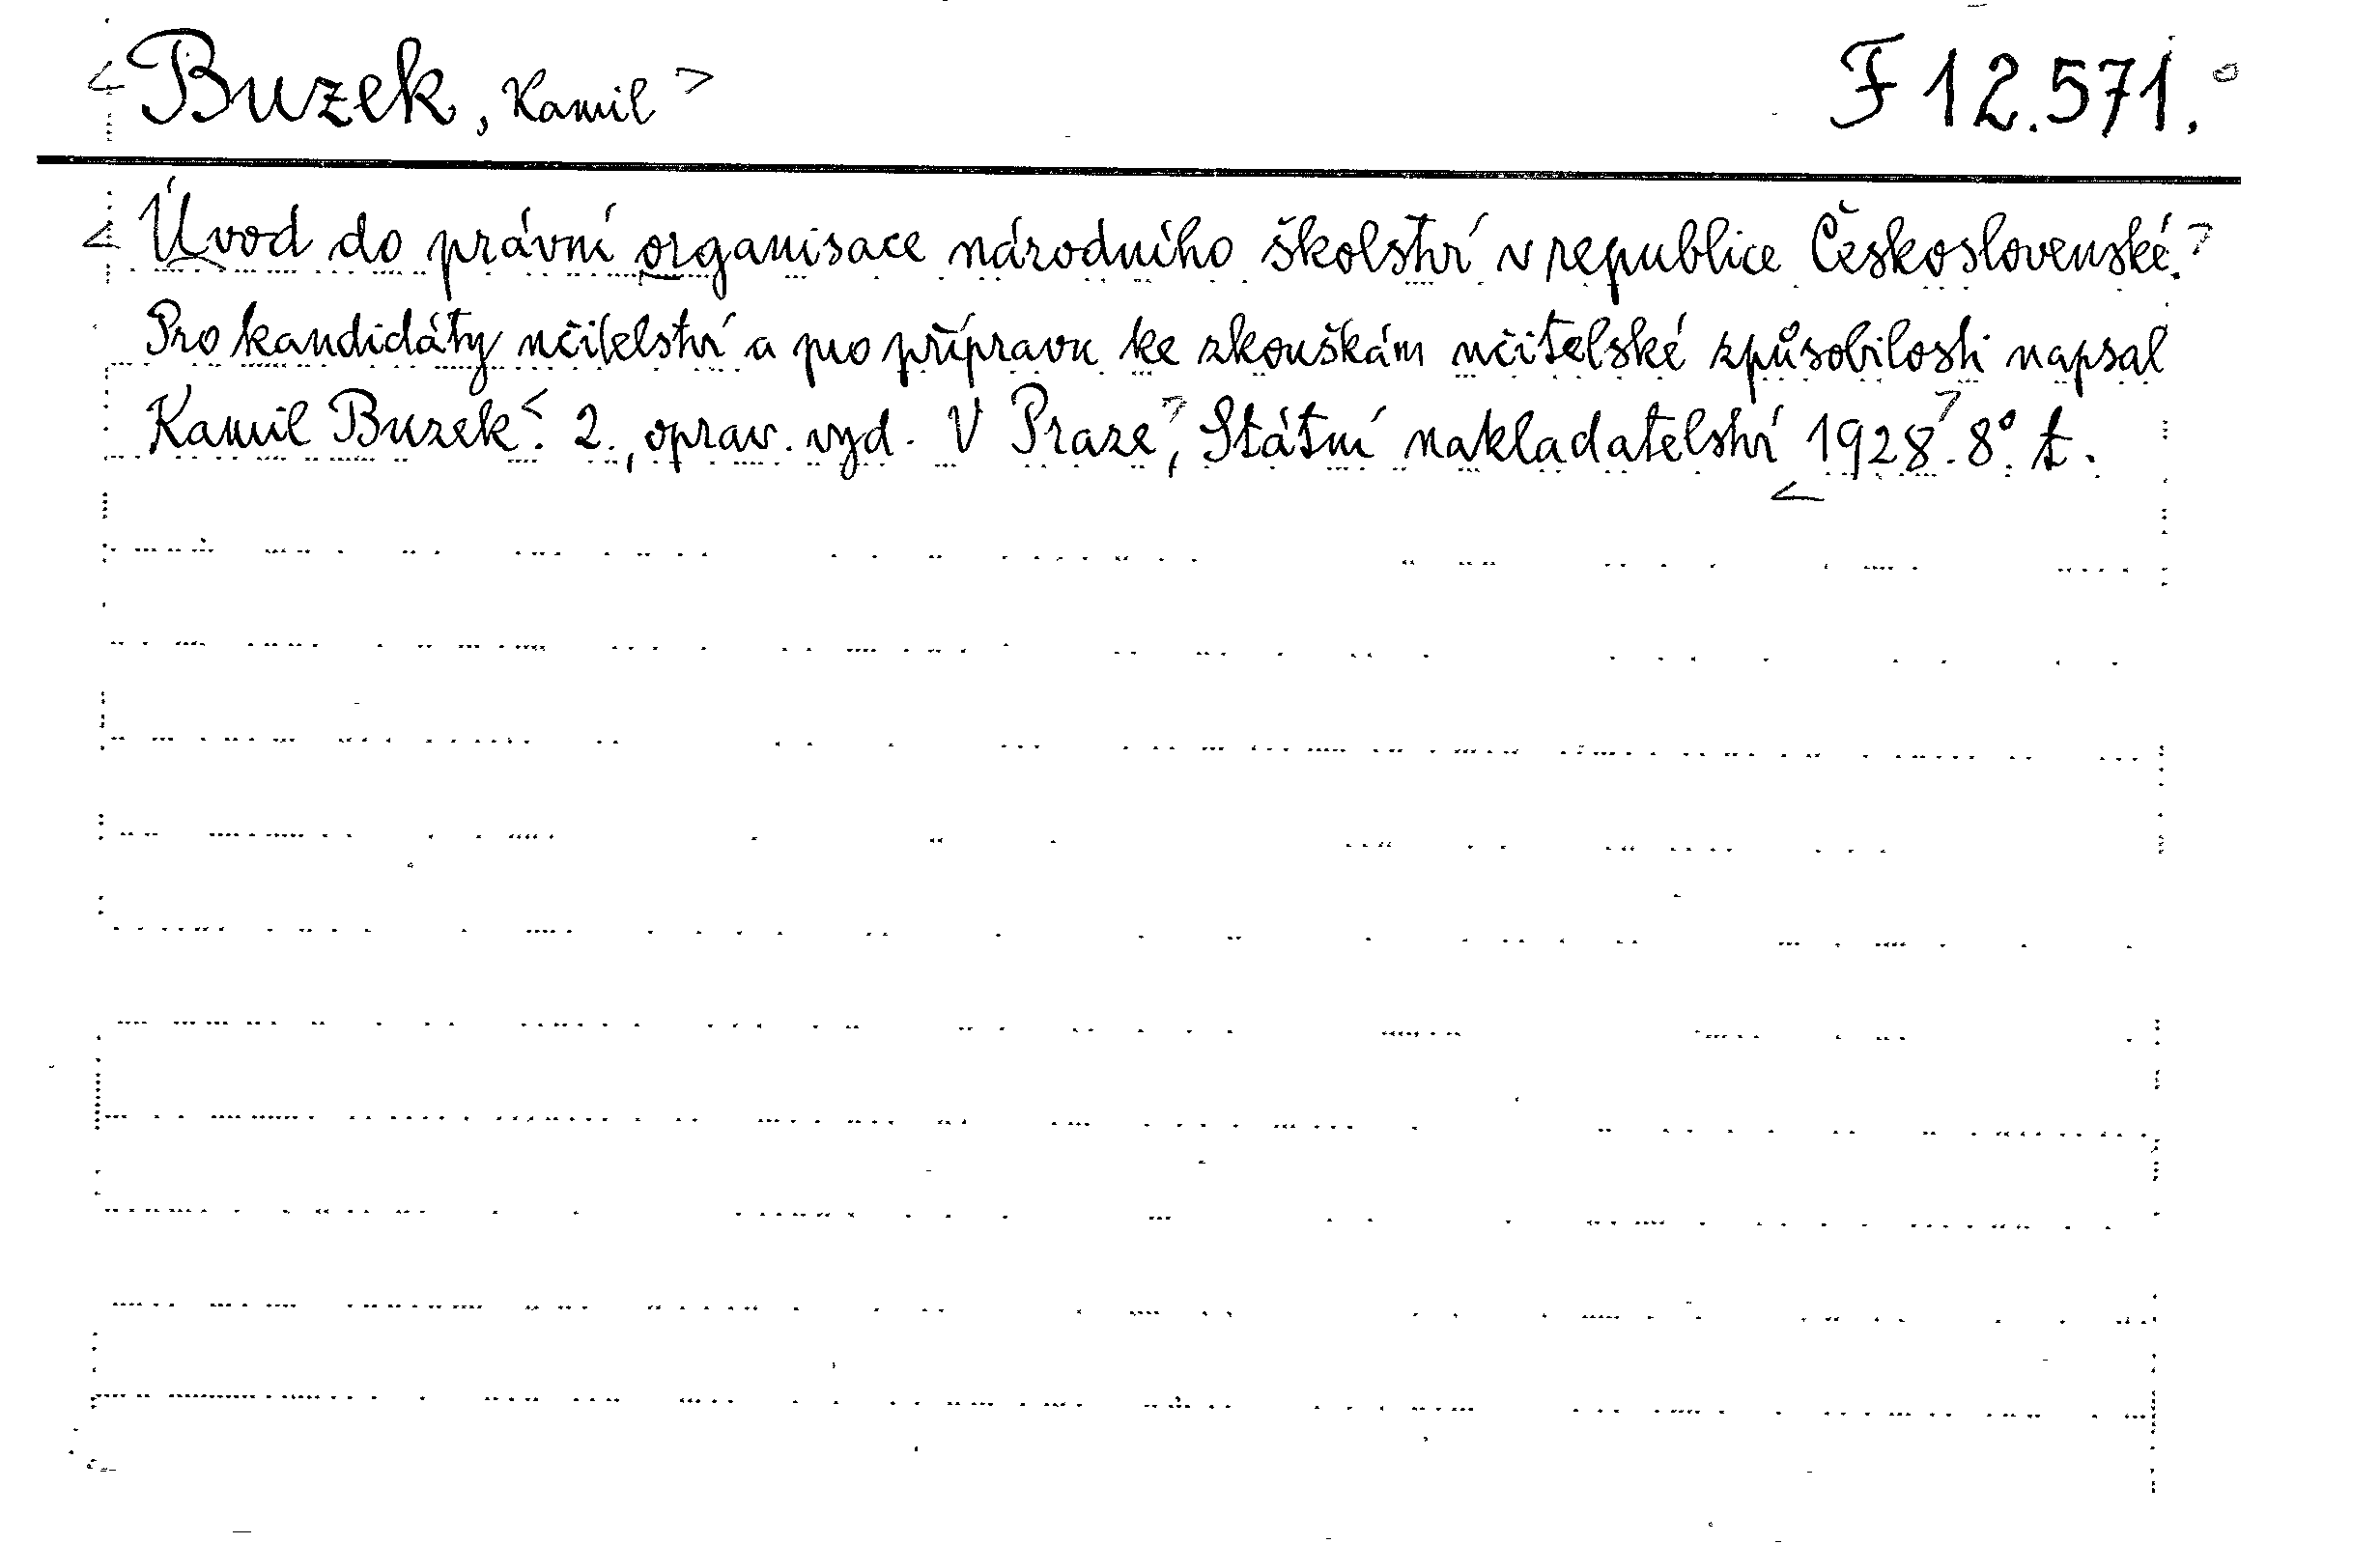 <Buzek, Kamil> F 12.571.°
<Úvod do právní organisace národního školství v republice Československé.>
Pro kandidáty učitelství a pro přípravu ke zkouškám učitelské způsobilosti napsal
Kamil Buzek.< 2., oprav. vyd. V Praze>, Státní nakladatelství <1928>. 8°. t.